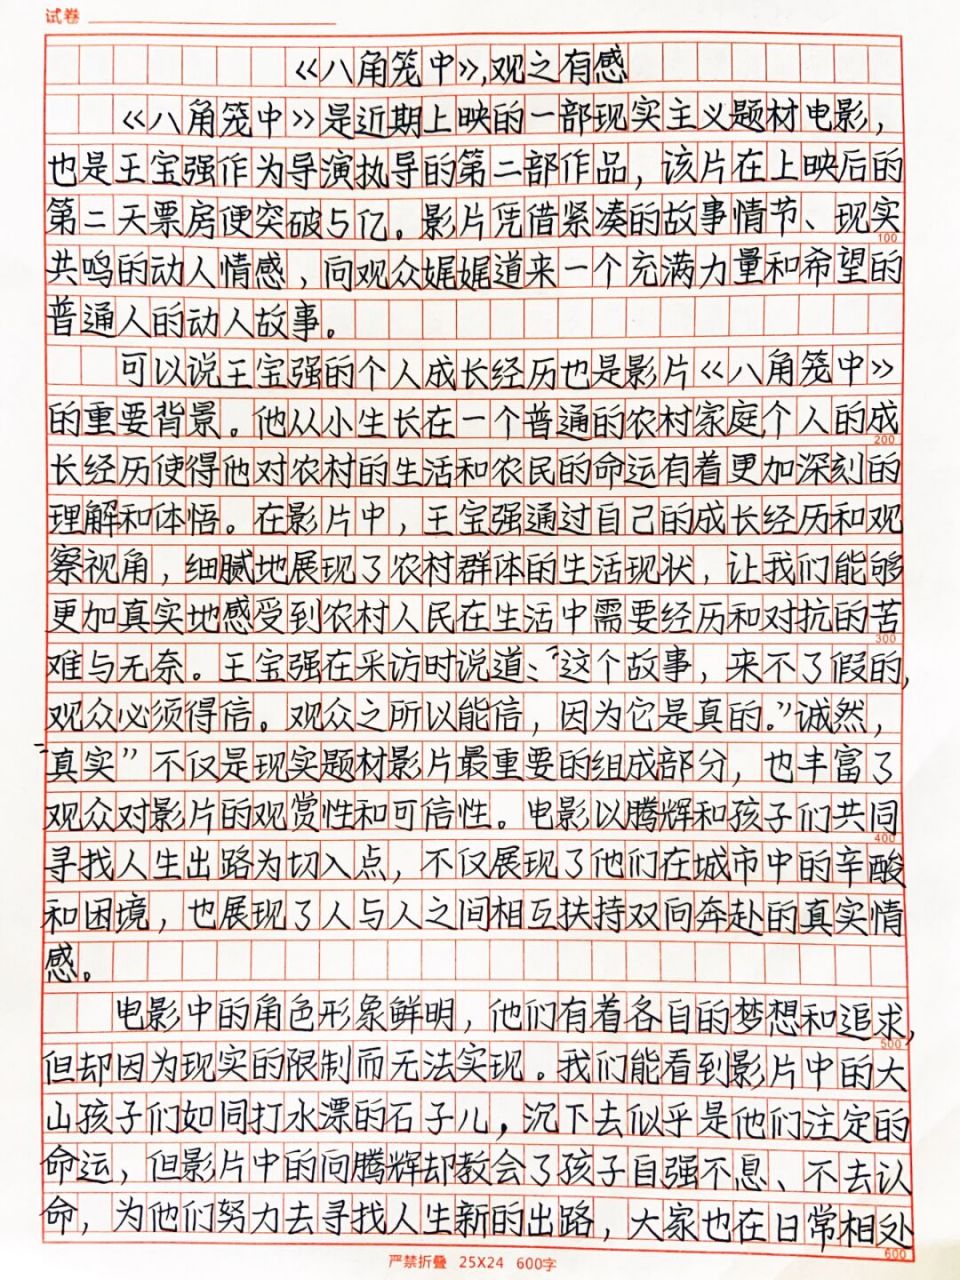 试卷
《八角笼中》,观之有感
《八角笼中》是近期上映的一部现实主义题材电影，
也是王宝强作为导演执导的第二部作品，该片在上映后的
第二天票房便突破5亿。影片凭借紧凑的故事情节、现实
100
共鸣的动人情感，向观众娓娓道来一个充满力量和希望的
普通人的动人故事。
可以说王宝强的个人成长经历也是影片《八角笼中》
的重要背景。他从小生长在一个普通的农村家庭个人的成
200
长经历使得他对农村的生活和农民的命运有着更加深刻的
理解和体悟。在影片中，王宝强通过自己的成长经历和观
察视角，细腻地展现了农村群体的生活现状，让我们能够
更加真实地感受到农村人民在生活中需要经历和对抗的苦
300
难与无奈。王宝强在采访时说道：“这个故事，来不了假的，
观众必须得信。观众之所以能信，因为它是真的。”诚然，
“真实”不仅是现实题材影片最重要的组成部分，也丰富了
观众对影片的观赏性和可信性。电影以腾辉和孩子们共同
400
寻找人生出路为切入点，不仅展现了他们在城市中的辛酸
和困境，也展现了人与人之间相互扶持双向奔赴的真实情
感。
电影中的角色形象鲜明，他们有着各自的梦想和追求，
500
但却因为现实的限制而无法实现。我们能看到影片中的大
山孩子们如同打水漂的石子儿，沉下去似乎是他们注定的
命运，但影片中的向腾辉却教会了孩子自强不息、不去认
命，为他们努力去寻找人生新的出路，大家也在日常相处
600
严禁折叠 25X24 600字